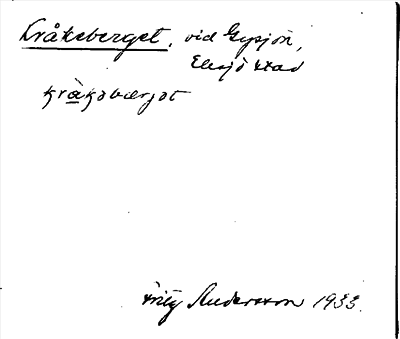 Kråkeberget, vid Gysjön,
Eksjö stad
kråkəbærjət
Fritz Andersson 1933.